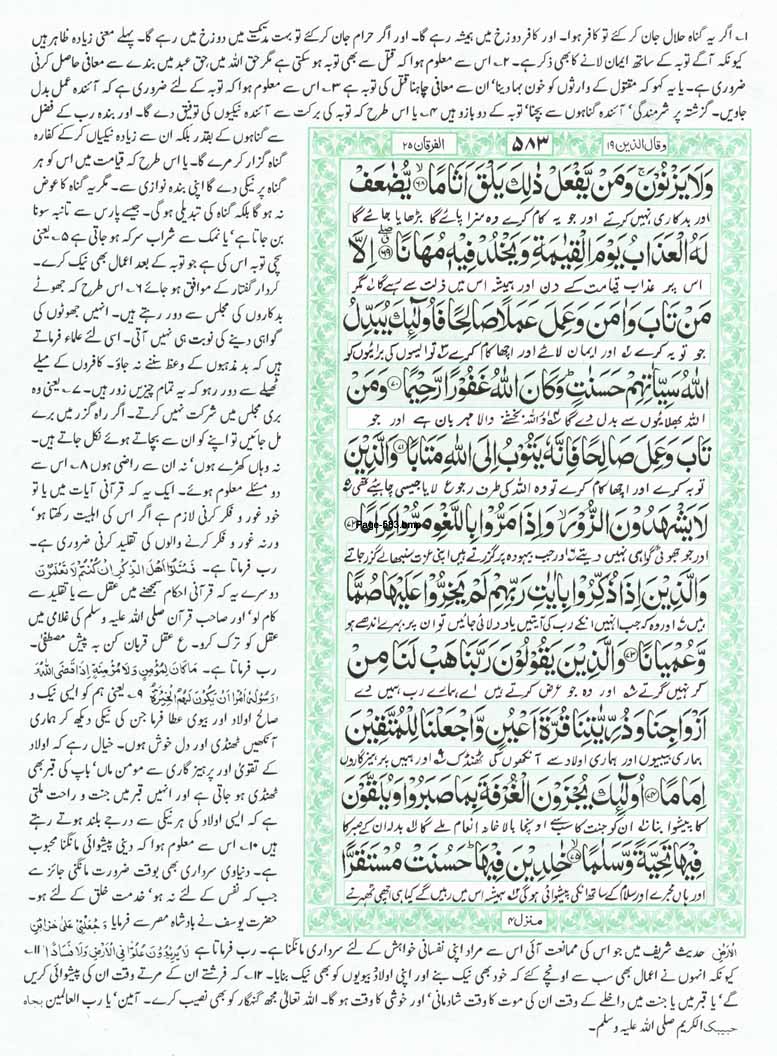 ۱؎ اگر یہ گناہ حلال جان کر کئے تو کافر ہوا۔ اور کافر دوزخ میں ہمیشہ رہے گا۔ اور اگر حرام جان کر کئے تو بہت مدت تک میں دوزخ میں رہے گا۔ پہلے معنی زیادہ ظاہر ہیں
کیونکہ آگے توبہ کے ساتھ ایمان لانے کا بھی ذکر ہے۔ ۲؎ اس سے معلوم ہوا کہ قتل سے بھی توبہ ہو سکتی ہے مگر حق اللہ میں حق عبد میں بندے سے معافی حاصل کرنی
ضروری ہے۔ یا یہ کہو کہ مقتول کے وارثوں کو خون بہا دینا' ان سے معافی چاہنا قتل کی توبہ ہے ۳؎ اس سے معلوم ہوا کہ توبہ کے لئے ضروری ہے کہ آئندہ عمل بدل
جاویں۔ گزشتہ پر شرمندگی' آئندہ گناہوں سے بچنا' توبہ کے دو بازو ہیں ۴؎ یا اس طرح کہ توبہ کی برکت سے آئندہ نیکیوں کی توفیق دے گا۔ اور بندہ رب کے فضل
وقال الذین ۱۹
۵۸۳
الفرقان ۲۵
وَلَا يَزْنُوْنَ ۚ وَمَنْ يَّفْعَلْ ذٰلِكَ يَلْقَ اَثَامًا ۙ﴿۶۸﴾ يُّضٰعَفْ
اور بدکاری نہیں کرتے اور جو یہ کام کرے وہ سزا پائے گا بڑھایا جائے گا
لَهُ الْعَذَابُ يَوْمَ الْقِيٰمَةِ وَيَخْلُدْ فِيْهٖ مُهَانًا ﴿۶۹﴾ اِلَّا
اس پر عذاب قیامت کے دن اور ہمیشہ اس میں ذلت سے رہے گا مگر
مَنْ تَابَ وَاٰمَنَ وَعَمِلَ عَمَلًا صَالِحًا فَاُولٰٓئِكَ يُبَدِّلُ
جو توبہ کرے اور ایمان لائے اور اچھا کام کرے تو ایسوں کی برائیوں کو
اللّٰهُ سَيِّاٰتِهِمْ حَسَنٰتٍ ؕ وَكَانَ اللّٰهُ غَفُوْرًا رَّحِيْمًا ﴿۷۰﴾ وَمَنْ
اللہ بھلائیوں سے بدل دے گا اور اللہ بخشنے والا مہربان ہے اور جو
تَابَ وَعَمِلَ صَالِحًا فَاِنَّهٗ يَتُوْبُ اِلَى اللّٰهِ مَتَابًا ﴿۷۱﴾ وَالَّذِيْنَ
توبہ کرے اور اچھا کام کرے تو وہ اللہ کی طرف رجوع لایا جیسی چاہیئے تھی
لَا يَشْهَدُوْنَ الزُّوْرَ ۙ وَاِذَا مَرُّوْا بِاللَّغْوِ مَرُّوْا كِرَامًا ﴿۷۲﴾
Page-583.bmp
اور جو جھوٹی گواہی نہیں دیتے اور جب بیہودہ پر گزرتے ہیں اپنی عزت سنبھالے گزر جاتے
وَالَّذِيْنَ اِذَا ذُكِّرُوْا بِاٰيٰتِ رَبِّهِمْ لَمْ يَخِرُّوْا عَلَيْهَا صُمًّا
ہیں اور وہ کہ جب انہیں انکے رب کی آیتیں یاد دلائی جائیں تو ان پر بہرے اندھے ہو
وَّعُمْيَانًا ﴿۷۳﴾ وَالَّذِيْنَ يَقُوْلُوْنَ رَبَّنَا هَبْ لَنَا مِنْ
کر نہیں گرتے اور وہ جو عرض کرتے ہیں اے ہمارے رب ہمیں دے
اَزْوَاجِنَا وَذُرِّيّٰتِنَا قُرَّةَ اَعْيُنٍ وَّاجْعَلْنَا لِلْمُتَّقِيْنَ
ہماری بیبیوں اور ہماری اولاد سے آنکھوں کی ٹھنڈک اور ہمیں پرہیزگاروں
اِمَامًا ﴿۷۴﴾ اُولٰٓئِكَ يُجْزَوْنَ الْغُرْفَةَ بِمَا صَبَرُوْا وَيُلَقَّوْنَ
کا پیشوا بنا ان کو جنت کا سب سے اونچا بالا خانہ انعام ملے گا بدلہ ان کے صبر کا
فِيْهَا تَحِيَّةً وَّسَلٰمًا ﴿۷۵﴾ خٰلِدِيْنَ فِيْهَا ؕ حَسُنَتْ مُسْتَقَرًّا
اور وہاں مجرے اور سلام کے ساتھ انکی پیشوائی ہوگی ہمیشہ اس میں رہیں گے کیا ہی اچھی ٹھہرنے
منزل ۴
سے گناہوں کے بقدر بلکہ ان سے زیادہ نیکیاں کر کے کفارہ
گناہ گزار کر مرے گا۔ یا اس طرح کہ قیامت میں اس کو ہر
گناہ پر نیکی دے گا اپنی بندہ نوازی سے۔ مگر یہ گناہ کا عوض
نہ ہو گا بلکہ گناہ کی تبدیلی ہوگی۔ جیسے پارس سے تانبہ سونا
بن جاتا ہے' یا نمک سے شراب سرکہ ہو جاتی ہے ۵؎ یعنی
سچی توبہ اس کی ہے جو توبہ کے بعد اعمال بھی نیک کرے۔
کردار گفتار کے موافق ہو جائے ۶؎ اس طرح کہ جھوٹے
بدکاروں کی مجلس سے دور رہتے ہیں۔ انہیں جھوٹوں کی
گواہی دینے کی نوبت ہی نہیں آتی۔ اسی لئے علماء فرماتے
ہیں کہ بد مذہبوں کے وعظ سننے نہ جاؤ۔ کافروں کے میلے
ٹھیلے سے دور رہو کہ یہ تمام چیزیں زور ہیں۔ ۷؎ یعنی وہ
بری مجلس میں شرکت نہیں کرتے۔ اگر راہ گزر میں برے
مل جائیں تو اپنے کو ان سے بچاتے ہوئے نکل جاتے ہیں۔
نہ وہاں کھڑے ہوں' نہ ان سے راضی ہوں ۸؎ اس سے
دو مسئلے معلوم ہوئے۔ ایک یہ کہ قرآنی آیات میں یا تو
خود غور و فکر کرنی لازم ہے اگر اس کی اہلیت رکھتا ہو'
ورنہ غور و فکر کرنے والوں کی تقلید کرنی ضروری ہے۔
رب فرماتا ہے۔ فَسْـَٔلُوْٓا اَهْلَ الذِّكْرِ اِنْ كُنْتُمْ لَا تَعْلَمُوْنَ
دوسرے یہ کہ قرآنی احکام سمجھنے میں عقل سے یا تقلید سے
کام لو' اور صاحب قرآن صلی اللہ علیہ وسلم کی غلامی میں
عقل کو ترک کرو۔ ع عقل قربان کن بہ پیش مصطفیٰ۔
رب فرماتا ہے۔ مَا كَانَ لِمُؤْمِنٍ وَّلَا مُؤْمِنَةٍ اِذَا قَضَى اللّٰهُ
وَرَسُوْلُهٗٓ اَمْرًا اَنْ يَّكُوْنَ لَهُمُ الْخِيَرَةُ ۹؎ یعنی ہم کو ایسی نیک و
صالح اولاد اور بیوی عطا فرما جن کی نیکی دیکھ کر ہماری
آنکھیں ٹھنڈی اور دل خوش ہوں۔ خیال رہے کہ اولاد
کے تقویٰ اور پرہیز گاری سے مومن ماں' باپ کی قبر بھی
ٹھنڈی ہو جاتی ہے اور انہیں قبر میں جنت و راحت ملتی
ہے کہ ایسی اولاد کی ہر نیکی سے درجے بلند ہوتے رہتے
ہیں ۱۰؎ اس سے معلوم ہوا کہ دینی پیشوائی مانگنا محبوب
ہے۔ دنیاوی سرداری بھی بوقت ضرورت مانگنی جائز ہے
جب کہ نفس کے لئے نہ ہو' خدمت خلق کے لئے ہو۔
حضرت یوسف نے بادشاہ مصر سے فرمایا اِجْعَلْنِيْ عَلٰى خَزَآئِنِ
الْاَرْضِ حدیث شریف میں جو اس کی ممانعت آئی اس سے مراد اپنی نفسانی خواہش کے لئے سرداری مانگنا ہے۔ رب فرماتا ہے لَا يُرِيْدُوْنَ عُلُوًّا فِي الْاَرْضِ وَلَا فَسَادًا ۱۱؎
کیونکہ انہوں نے اعمال بھی سب سے اونچے کئے کہ خود بھی نیک بنے اور اپنی اولاد' بیویوں کو بھی نیک بنایا۔ ۱۲؎ کہ فرشتے ان کے مرتے وقت ان کی پیشوائی کریں
گے' یا قبر میں یا جنت میں داخلے کے وقت ان کی موت کا وقت شادمانی' اور خوشی کا وقت ہو گا۔ اللہ تعالیٰ مجھ گنہگار کو بھی نصیب کرے۔ آمین' یا رب العالمین بجاہ
حبیبک الکریم صلی اللہ علیہ وسلم۔